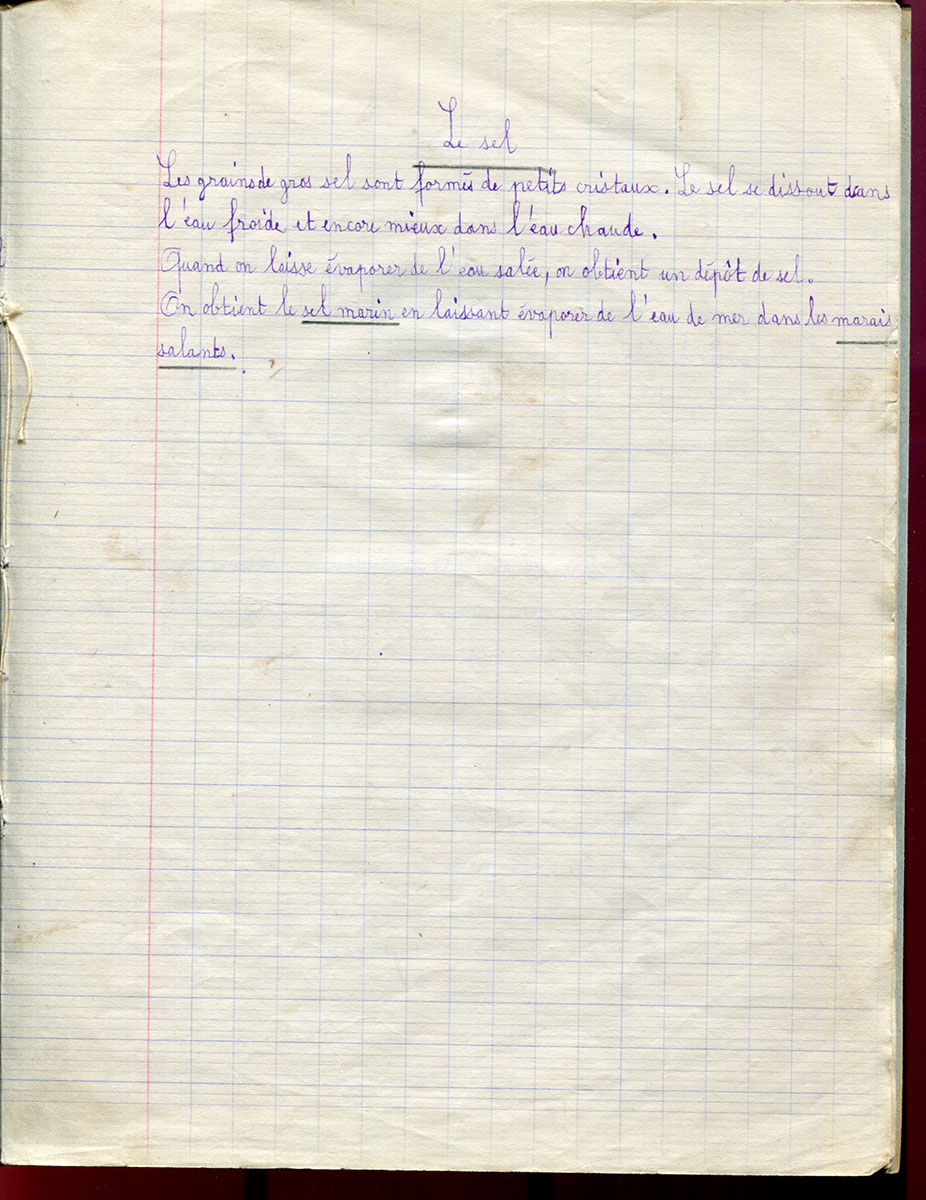 Le sel
Les grains de gros sel sont formés de petits cristaux. Le sel se dissout dans
l'eau froide et encore mieux dans l'eau chaude.
Quand on laisse évaporer de l'eau salée, on obtient un dépôt de sel.
On obtient le sel marin en laissant évaporer de l'eau de mer dans les marais
salants.